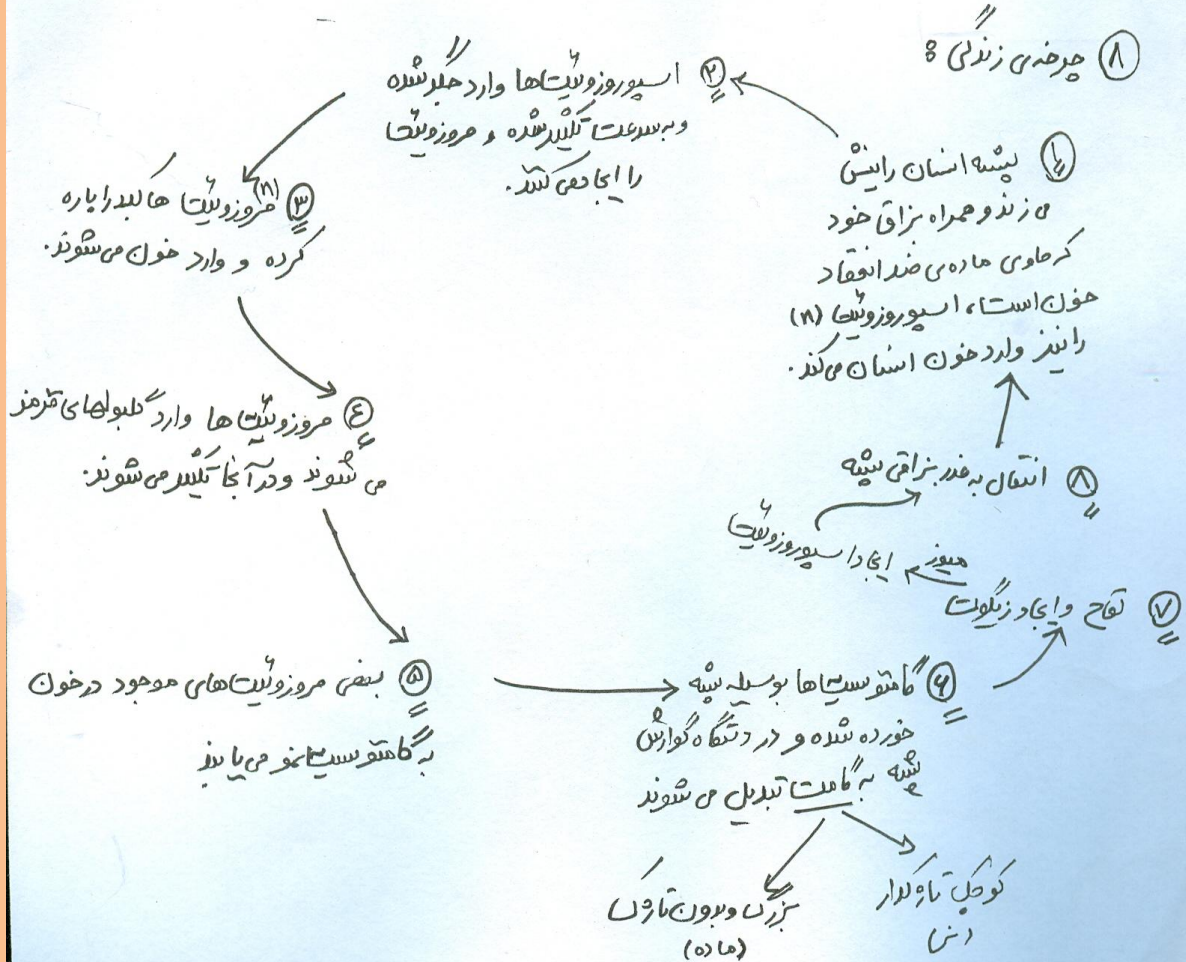 ۸ چرخه‌ی زندگی :
۱ پشه انسان را نیش
می زند و همراه بزاق خود
که حاوی ماده‌ی ضد انعقاد
خون است، اسپوروزوئیت (n)
را نیز وارد خون انسان می‌کند.
۲ اسپوروزوئیت‌ها وارد جگر شده
و به سرعت تکثیر شده و مروزوئیت
را ایجاد می کنند.
۳ مروزوئیت (n) ها کبد را پاره
کرده و وارد خون می‌شوند.
۴ مروزوئیت ها وارد گلبولهای قرمز
می شوند و در آنجا تکثیر می‌شوند.
۵ بعضی مروزوئیت‌های موجود در خون
به گامتوسیت نمو می‌یابند
۶ گامتوسیت‌ها بوسیله پشه
خورده شده و در دستگاه گوارش
پشه به گامت تبدیل می شوند
کوچک تاژکدار
(نر)
بزرگ و بدون تاژک
(ماده)
۷ لقاح و ایجاد زیگوت
میوز ایجاد اسپوروزوئیت
۸ انتقال به غدد بزاقی پشه